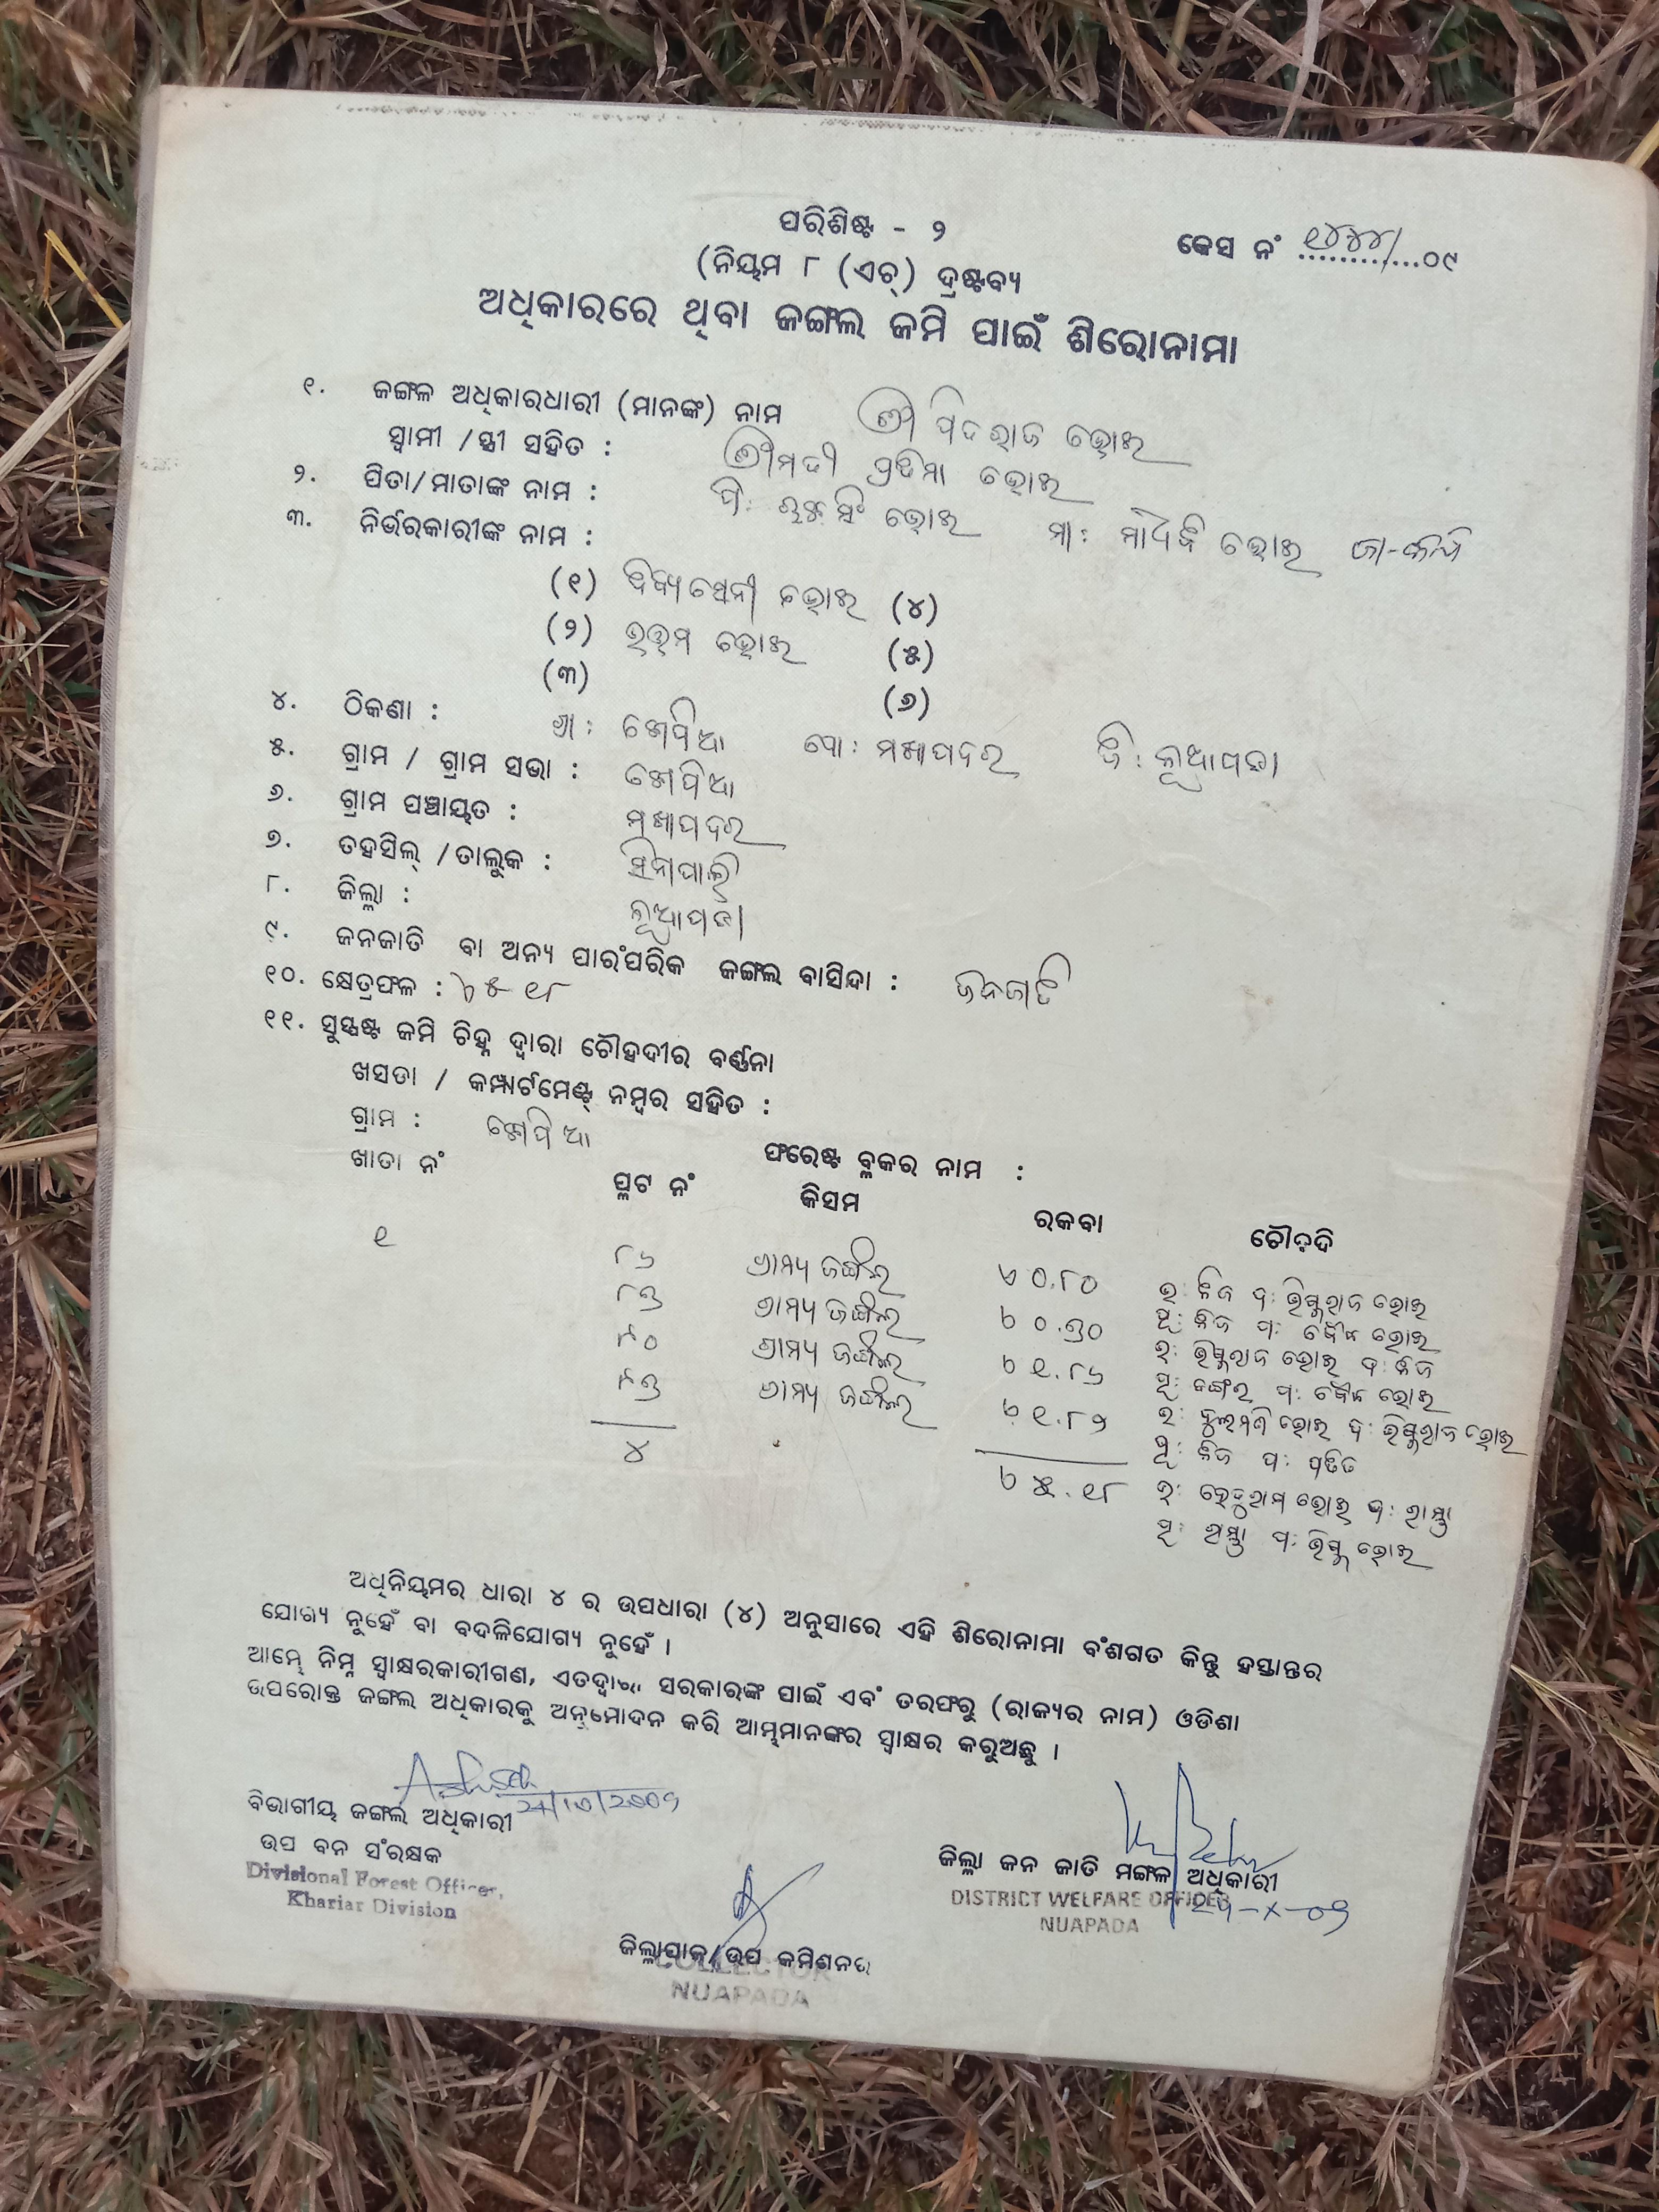 ପରିଶିଷ୍ଟ - ୨
କେସ ନଂ ୧୪୪୪/୦୯
(ନିୟମ ୮ (ଏଚ୍) ଦ୍ରଷ୍ଟବ୍ୟ
ଅଧିକାରରେ ଥିବା ଜଙ୍ଗଲ ଜମି ପାଇଁ ଶିରୋନାମା
୧. ଜଙ୍ଗଳ ଅଧିକାରଧାରୀ (ମାନଙ୍କ) ନାମ ଶ୍ରୀ ପିଦରାଜ ଭୋଇ
ସ୍ୱାମୀ /ସ୍ତ୍ରୀ ସହିତ : ଶ୍ରୀମତୀ ପ୍ରତିମା ଭୋଇ
୨. ପିତା/ମାତାଙ୍କ ନାମ : ପି: ଭୋଇ ମା: ଭୋଇ
୩. ନିର୍ଭରକାରୀଙ୍କ ନାମ :
(୧) ଭୋଇ (୪)
(୨) ଉତ୍ତମ ଭୋଇ (୫)
(୩) (୬)
୪. ଠିକଣା : ଗ୍ରା: ପୋ: ଜି: ନୂଆପଡା
୫. ଗ୍ରାମ / ଗ୍ରାମ ସଭା :
୬. ଗ୍ରାମ ପଞ୍ଚାୟତ :
୭. ତହସିଲ୍ /ତାଲୁକ : ସିନାପାଲି
୮. ଜିଲ୍ଲା : ନୂଆପଡା
୯. ଜନଜାତି ବା ଅନ୍ୟ ପାରଂପରିକ ଜଙ୍ଗଲ ବାସିନ୍ଦା : ଜନଜାତି
୧୦. କ୍ଷେତ୍ରଫଳ : ୫-୧୮
୧୧. ସୁସ୍ପଷ୍ଟ ଜମି ଚିହ୍ନ ଦ୍ୱାରା ଚୌହଦୀର ବର୍ଣ୍ଣନା
ଖସଡା / କମ୍ପାର୍ଟମେଣ୍ଟ୍ ନମ୍ବର ସହିତ :
ଗ୍ରାମ : ଫରେଷ୍ଟ ବ୍ଲକର ନାମ :
ଖାତା ନଂ ପ୍ଲଟ ନଂ କିସମ ରକବା ଚୌହଦି
୧ ୮୬ ଗ୍ରାମ୍ୟ ଜଙ୍ଗଲ ୦.୮୦ ଉ: ନିଜ ଦ: ଭିଷ୍ମରାଜ ଭୋଇ
ପୂ: ନିଜ ପ: ଭୋଇ
୮୭ ଗ୍ରାମ୍ୟ ଜଙ୍ଗଲ ୦.୭୦ ଉ: ଭିଷ୍ମରାଜ ଭୋଇ ଦ: ନିଜ
ପୂ: ଜଙ୍ଗଲ ପ: ଭୋଇ
୯୦ ଗ୍ରାମ୍ୟ ଜଙ୍ଗଲ ୧.୮୬ ଉ: ଭୋଇ ଦ: ଭିଷ୍ମରାଜ ଭୋଇ
ପୂ: ନିଜ ପ: ପତିତ
୯୭ ଗ୍ରାମ୍ୟ ଜଙ୍ଗଲ ୧.୮୨ ଉ: ଭୋଇ ଦ: ରାସ୍ତା
ପୂ: ରାସ୍ତା ପ: ଭିଷ୍ମ ଭୋଇ
୪ ୫.୧୮
ଅଧିନିୟମର ଧାରା ୪ ର ଉପଧାରା (୪) ଅନୁସାରେ ଏହି ଶିରୋନାମା ବଂଶଗତ କିନ୍ତୁ ହସ୍ତାନ୍ତର
ଯୋଗ୍ୟ ନୁହେଁ ବା ବଦଳିଯୋଗ୍ୟ ନୁହେଁ ।
ଆମ୍ଭେ ନିମ୍ନ ସ୍ୱାକ୍ଷରକାରୀଗଣ, ଏତଦ୍ୱାରା ସରକାରଙ୍କ ପାଇଁ ଏବଂ ତରଫରୁ (ରାଜ୍ୟର ନାମ) ଓଡିଶା
ଉପରୋକ୍ତ ଜଙ୍ଗଲ ଅଧିକାରକୁ ଅନୁମୋଦନ କରି ଆମ୍ଭମାନଙ୍କର ସ୍ୱାକ୍ଷର କରୁଅଛୁ ।
24/10/2009
ବିଭାଗୀୟ ଜଙ୍ଗଲ ଅଧିକାରୀ
ଉପ ବନ ସଂରକ୍ଷକ
Divisional Forest Officer,
Khariar Division
ଜିଲ୍ଲା ଜନ ଜାତି ମଙ୍ଗଳ ଅଧିକାରୀ
DISTRICT WELFARE OFFICER
NUAPADA
ଜିଲ୍ଲାପାଳ/ଉପ କମିଶନର
COLLECTOR
NUAPADA